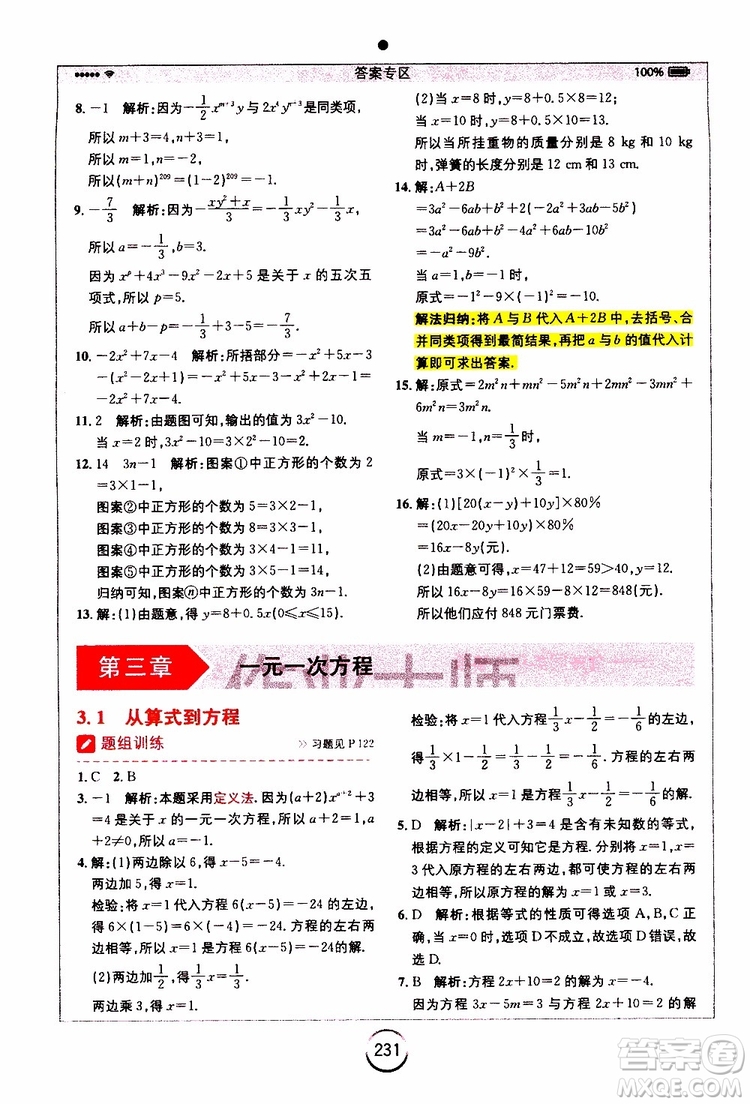 答案专区
100%
8. －1　解析:因为－1/2 x^{m+3}y与2x^4y^{n+3}是同类项,
所以 m＋3＝4,n＋3＝1,
所以 m＝1,n＝－2,
所以(m＋n)^{209}＝(1－2)^{209}＝－1.
9. －7/3　解析:因为－(xy²＋x)/3＝－1/3 xy²－1/3 x,
所以 a＝－1/3,b＝3.
因为 x^p＋3x³－2x＋5 是关于 x 的五次五
项式,所以 p＝5.
所以 a－b＋p/5＝－1/3－3＋5/5＝－7/3.
10. －2x²＋7x－4　解析:所捂部分＝
－2x²＋7x－4.
11. 2　解析:由题图可知,输出的值为 3x²－10.
当 x＝2 时,3x²－10＝3×2²－10＝2.
12. 14　3n－1　解析:图案①中正方形的个数为 2
＝3×1－1,
图案②中正方形的个数为 5＝3×2－1,
图案③中正方形的个数为 8＝3×3－1,
图案④中正方形的个数为 11＝3×4－1,
图案⑤中正方形的个数为 14＝3×5－1,
归纳可知,图案ⓝ中正方形的个数为 3n－1.
13. 解:(1)由题意,得 y＝8＋0.5x(0≤x≤15).
(2)当 x＝8 时,y＝8＋0.5×8＝12;
当 x＝10 时,y＝8＋0.5×10＝13.
所以当所挂重物的质量分别是 8 kg 和 10 kg
时,弹簧的长度分别是 12 cm 和 13 cm.
14. 解:A＋2B
＝3a²－6ab＋b²＋2(－2a²＋3ab－5b²)
＝3a²－6ab＋b²－4a²＋6ab－10b²
＝－a²－9b².
当 a＝1,b＝－1 时,
原式＝－1²－9×(－1)²＝－10.
解法归纳:将 A 与 B 代入 A＋2B 中,去括号、合
并同类项得到最简结果,再把 a 与 b 的值代入计
算即可求出答案.
15. 解:原式＝2m²n＋mn－5m²n－mn＋
6m²n＝3m²n.
当 m＝－1,n＝1/3时,
原式＝3×(－1)²×1/3＝1.
16. 解:(1)[20(x－y)＋10y]×80%
＝(20x－20y＋10y)×80%
＝16x－8y(元).
(2)由题意可得,x＝47＋12＝59＞40,y＝12,
所以 16x－8y＝16×59－8×12＝848(元).
所以他们应付 848 元门票费.
第三章
一元一次方程
3.1　从算式到方程
题组训练
习题见 P 122
1. C　2. B
3. －1　解析:本题采用定义法.因为(a＋2)x^{a+2}＋3
＝4 是关于 x 的一元一次方程,所以 a＋2＝1,
a＋2≠0,所以 a＝－1.
4. 解:(1)两边除以 6,得 x－5＝－4.
两边加 5,得 x＝1.
检验:将 x＝1 代入方程 6(x－5)＝－24 的左边,
得 6×(1－5)＝6×(－4)＝－24＝右边.方程两
边相等,所以 x＝1 是方程 6(x－5)＝－24 的解.
(2)两边加1/2,得1/3x＝1/3.
两边乘 3,得 x＝1.
检验:将 x＝1 代入方程1/3x－1/2＝－1/6的左边,
得1/3×1－1/2＝1/3－1/2＝－1/6＝右边.方程两
边相等,所以 x＝1 是方程1/3x－1/2＝－1/6的解.
5. D　解析:|x－2|＋3＝4 是含有未知数的等式,
根据方程的定义可知它是方程.分别将 x＝1,x＝
3 代入原方程的左右两边,都可使方程的左右两边
相等,所以方程的解为 x＝1 或 x＝3.
6. D　解析:根据等式的性质可得选项 A,B,C 正
确.选项 D 中,当 a＝0 时不成立,故选项 D 错误,故
选 D.
7. B　解析:方程 x＋5＝1 的解为 x＝－4.
因为方程 3x－5m＝3 与方程 x＋5＝1 的解
231
答案圈
MXQE.COM